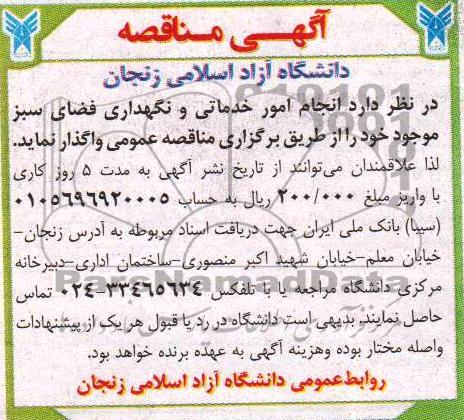 آگهی مناقصه
دانشگاه آزاد اسلامی زنجان
در نظر دارد انجام امور خدماتی و نگهداری فضای سبز
موجود خود را از طریق برگزاری مناقصه عمومی واگذار نماید.
لذا علاقمندان می‌توانند از تاریخ نشر آگهی به مدت ۵ روز کاری
با واریز مبلغ ۲۰۰/۰۰۰ ریال به حساب ۰۱۰۵۶۹۶۹۲۰۰۰۵
(سیبا) بانک ملی ایران جهت دریافت اسناد مربوطه به آدرس زنجان-
خیابان معلم-خیابان شهید اکبر منصوری-ساختمان اداری-دبیرخانه
مرکزی دانشگاه مراجعه یا با تلفکس ۳۳۴۶۵۶۳۴-۰۲۴ تماس
حاصل نمایند. بدیهی است دانشگاه در رد یا قبول هر یک از پیشنهادات
واصله مختار بوده وهزینه آگهی به عهده برنده خواهد بود.
روابط عمومی دانشگاه آزاد اسلامی زنجان